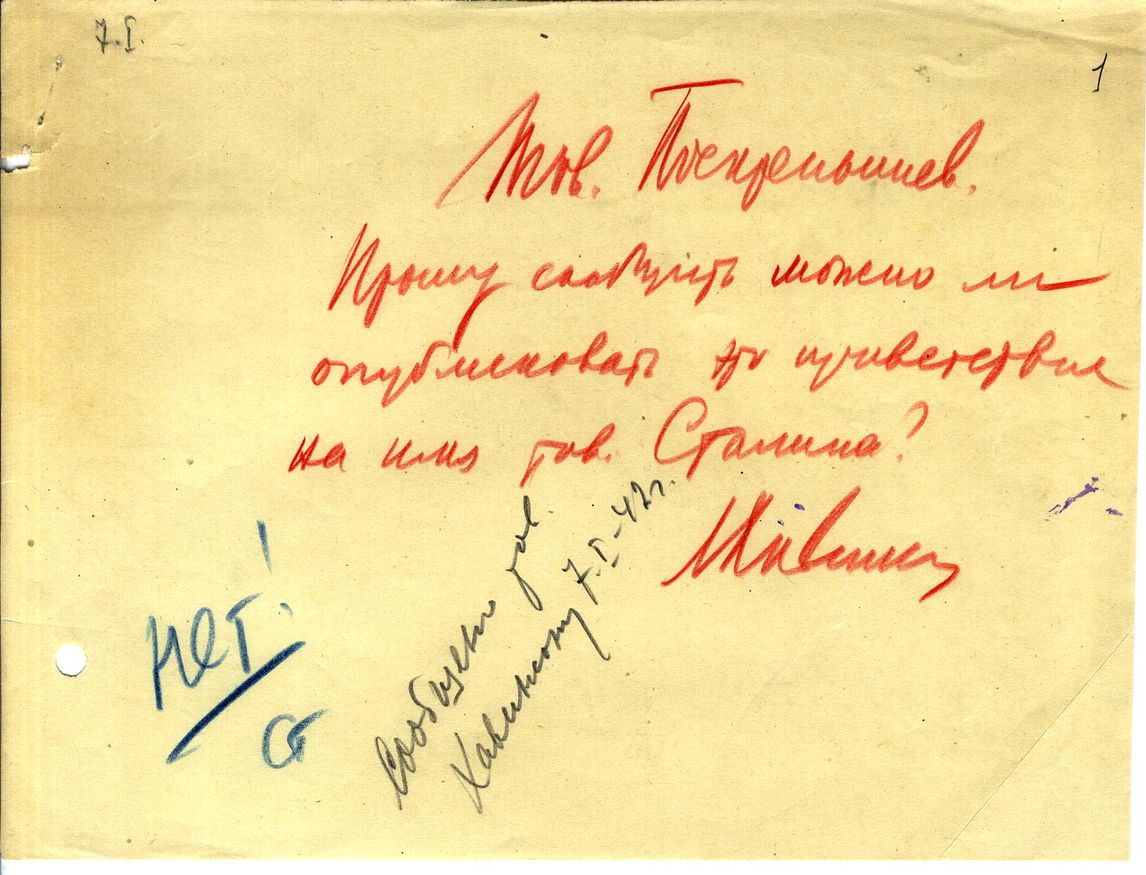 7.I.
1
Тов. Поскребышев.
Прошу сообщить можно ли
опубликовать это приветствие
на имя тов. Сталина?
Хавинсон
Нет!
Ст
Сообщено тов.
Хавинсону 7.I-42г.